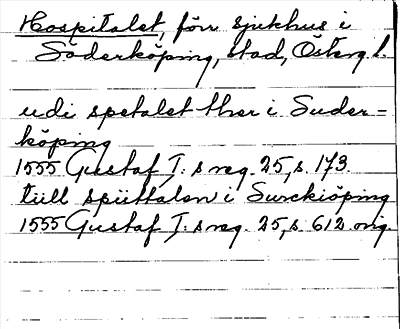 Hospitalet, förr sjukhus i
Söderköping, stad, Österg. l.
udi spetalet ther i Suder=
köping
1555 Gustaf I:s reg. 25, s. 173.
tiill spiittalen i Surckiöping
1555 Gustaf I:s reg. 25, s. 612. orig.